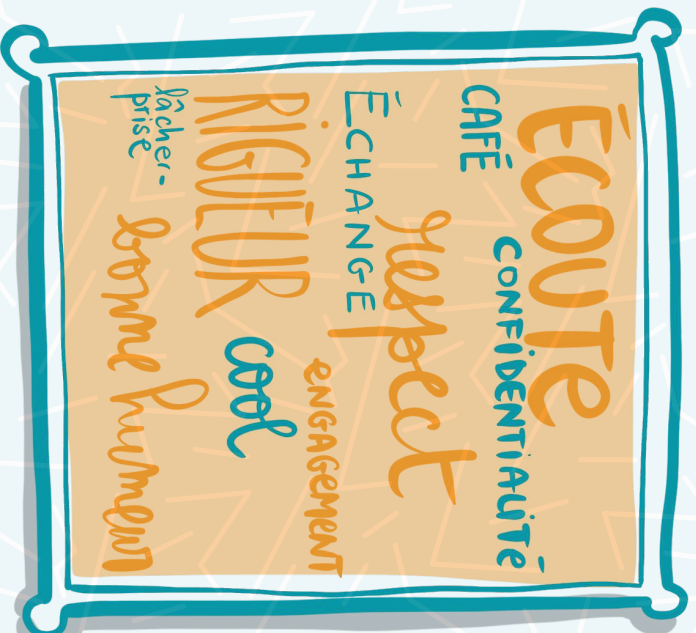 ÉCOUTE
CAFÉ
CONFIDENTIALITÉ
respect
ÉCHANGE
ENGAGEMENT
RIGUEUR
cool
lâcher-
prise
bonne humeur